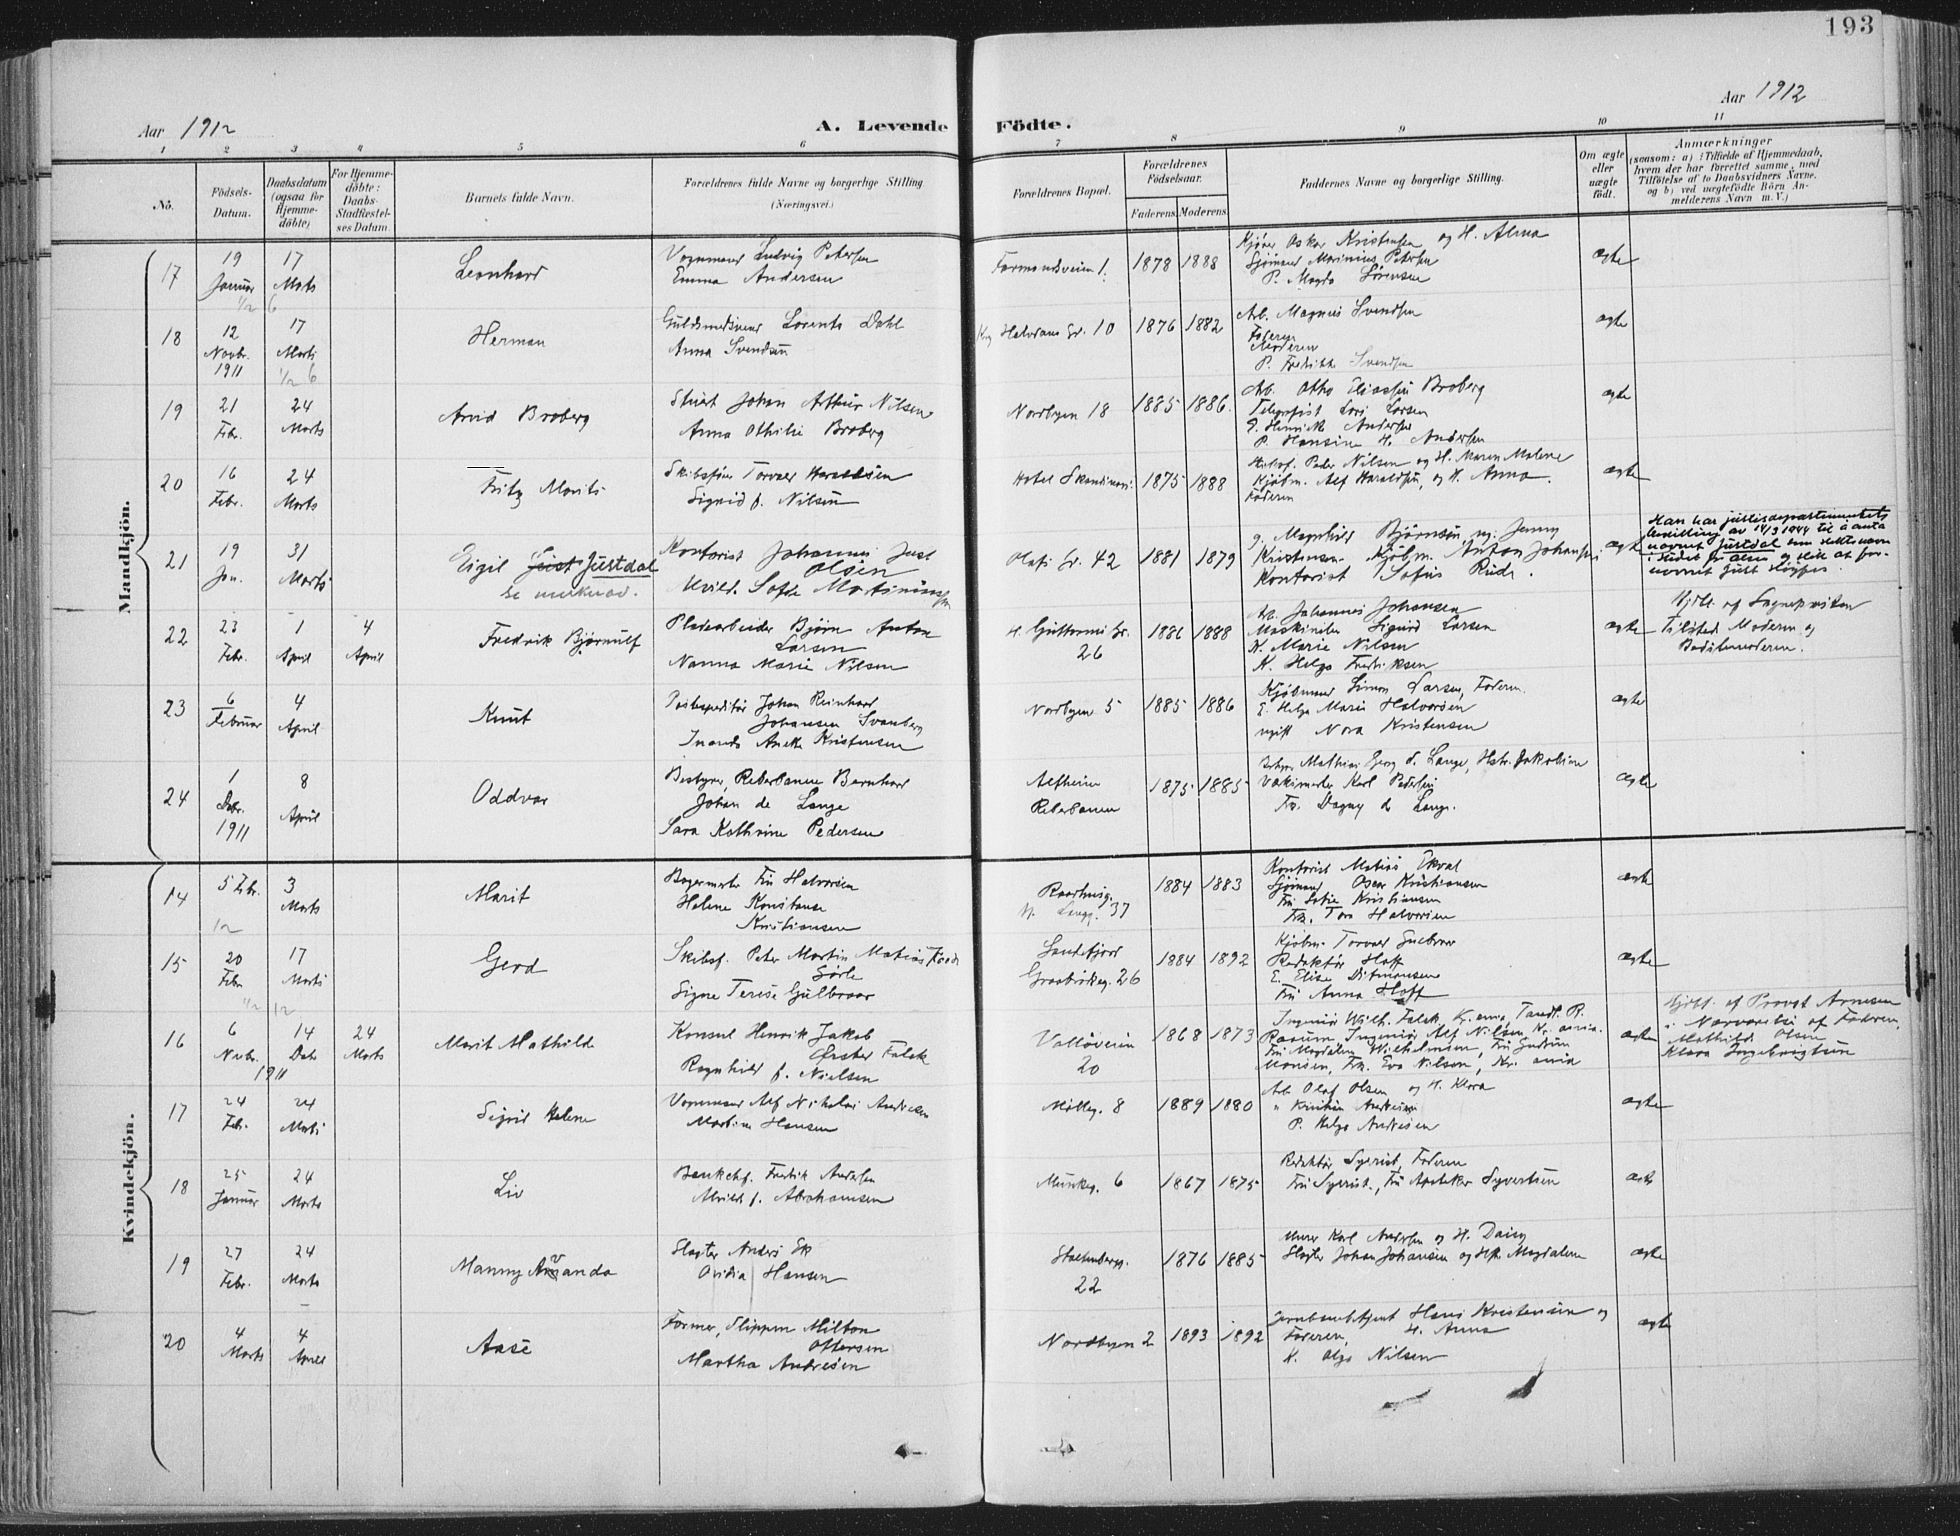 193
Aar 1912
A. Levende Födte.
Aar 1912
1 2 3 4 5 6 7 8 9 10 11
No.
Födsels-Datum.
Daabsdatum (ogsaa for Hjemme-döbte)
For Hjemme-döbte: Daabs-Stadfæstel-ses Datum.
Barnets fulde Navn.
Forældrenes fulde Navne og borgerlige Stilling
(Næringsvei.)
Forældrenes Bopæl.
Forældrenes Födselsaar.
Faderens. Moderens.
Faddernes Navne og borgerlige Stilling.
Om ægte eller uægte födt.
Anmærkninger
(saasom: a) i Tilfælde af Hjemmedaab,
hvem der har forrettet samme, med
Tilföielse af to Daabsvidners Navne.
og b) ved uægtefödte Börn An-
melderens Navn m. V.)
Mandkjön.
17 19 Januar 17 Marts Leonhard
Vognmand Ludvig Petersen
Emma Andersen
Farmandsveien 1. 1878 1888
Kjører Oskar Kristensen og H. Alma
Sjömand Marinius Petersen
P. Magda Sørensen
ægte
18 12 Novbr. 1911 17 Marts Herman
Guldsmedsvend Lorents Dahl
Anna Svendsen
Halvdans Gr. 10 1876 1882
Arb. Magnus Svendsen
Faderen
Moderen
P. Fredrikke Svendsen
ægte
19 21 Febr. 24 Marts Arvid Broberg
Johan Arthur Nilsen
Anna Othilie Broberg
Nordbyen 18 1885 1886.
Arb. Otto Eliassen Broberg
Telegrafist Lars Larsen
E. Henrikke Andersen
P. Hansine H. Andersen
ægte
20 16 Febr. 24 Marts Fritz Morits
Skibsfører Torvald Haraldsen
Sigrid f. Nilsen
Hotel Skandinavi. 1875 1888
Skibsf. Peder Nilsen og H. Maren Malene
Kjøbm. Alf Haraldsen, og H. Anna.
Faderen
ægte
21 19 Jan. 31 Marts Eigil Just Justdal
se merknad.
Kontorist Johannes Just
Olsen
Alvild. Sofie Martiniussen
Olafs Gr. 42 1881 1879
g. Magnhild Bjørnsen, ug. Jenny
Kristensen Kjøbm. Anton Johansen
Kontorist Sofus Rude.
ægte
Han har justisdepartementets
bevilling av 14/3 1944 til å anta
navnet Justdal som slektsnavn
i stedet for Olsen og slik at for-
navnet Just sløyfes.
22 23 Febr. 1 April 4 April Fredrik Bjørnulf
Pladearbeider Bjørn Anton
Larsen
Nanna Marie Nilsen
H. Guttorms Gr. 26 1886 1888
Arb. Johannes Johansen
Maskinist Sigurd Larsen
K. Marie Nilsen
K. Helga Fredriksen
ægte
Hjdb. af Sognepresten
Tilsted. Moderen og
Bedstemoderen.
23 6 Februar 4 April Knut
Postexpeditør Johan Reinhard
Johansen Svanberg
Inanda Anette Kristensen
Nordbyen 5 1885 1886
Kjøbmand Simon Larsen, Faderen.
E. Helga Marie Halvorsen
ugift Nora Kristensen
ægte
24 1 Dcbr. 1911 8 April Oddvar
Bestyrer, Reberbanen Bernhard
Johan de Lange
Sara Kathrine Pedersen
Alfheim
Reberbanen
1875 1885
Mathias Georg d. Lange, Hstr. Jakobine
Værkmester Karl Pedersen
Frk. Dagny de Lange.
ægte
Kvindekjön.
14 5 Febr. 3 Marts Marit
Bagermester Halvorsen
Helene Konstanse
Kristiansen
Raadhusg.
N. Langg. 37
1884 1883
Kontorist Matias Ekval
Sjömand Oscar Kristiansen
Fru Sofie Kristiansen
Frk. Tora Halvorsen
ægte
15 20 Febr 17 Marts Gerd
Skibsf. Peter Martin Matias
Sørle
Signe Terese Gulbraar
Sandefjord
Graabrødreg. 26
1884 1892
Kjøbm. Torvald Gulbraar
Redaktør Hoff
E. Elise Ditmansen
Fru Anna Hoff
ægte
16 6 Novbr. 1911 14 Dcbr 24 Marts Marit Mathilde
Konsul Henrik Jakob
Ørster Falck
Ragnhild f. Nielsen
Valløveien
20
1868 1873
Ingeniør Wilh. Falck, Kr.ania, Tandl. R.
Ingeniør Alf Nilsen, Kr. ania.
Fru Magdalene Wilhelmsen, Fru Gudrun
Monsen, Frk. Eva Nilsen, Kr. ania
ægte
Hjdbt. af Provst Arnesen
i Nærværelse af Faderen,
Mathilde Olsen
Klara Ingebrigtsen
17 24 Febr. 24 Marts Sigrid Helene
Vognmand Alf Nikolai Andresen
Martine Hansen
Mølleg. 8 1889 1880
Arb. Olaf Olsen og H. Klara
" Kristian Andresen
P. Helga Andresen
ægte
18 25 Januar 24 Marts Liv
Bankchef. Fredrik Andersen
Alvilde f. Abrahamsen
Munkeg. 6 1867 1875
Redaktør Syvertsen, Faderen
Fru Apoteker Syvertsen
ægte
19 27 Febr. 24 Marts Manny Arvanda
Slagter Anders Ek
Ovidia Hansen
Stoltenbergg.
22
1876 1885
Murer Karl Andersen og H. Daisy
Slagter Johan Johansen og Hst. Magdalene
ægte
20 4 Marts 4 April Aase
Former, Flippen Milton
Ottersen
Martha Andresen
Nordbyen 2 1893 1892
Jernbanebetjent Hans Kristensen og
Faderen, H. Anna
K. Olga Nilsen
ægte